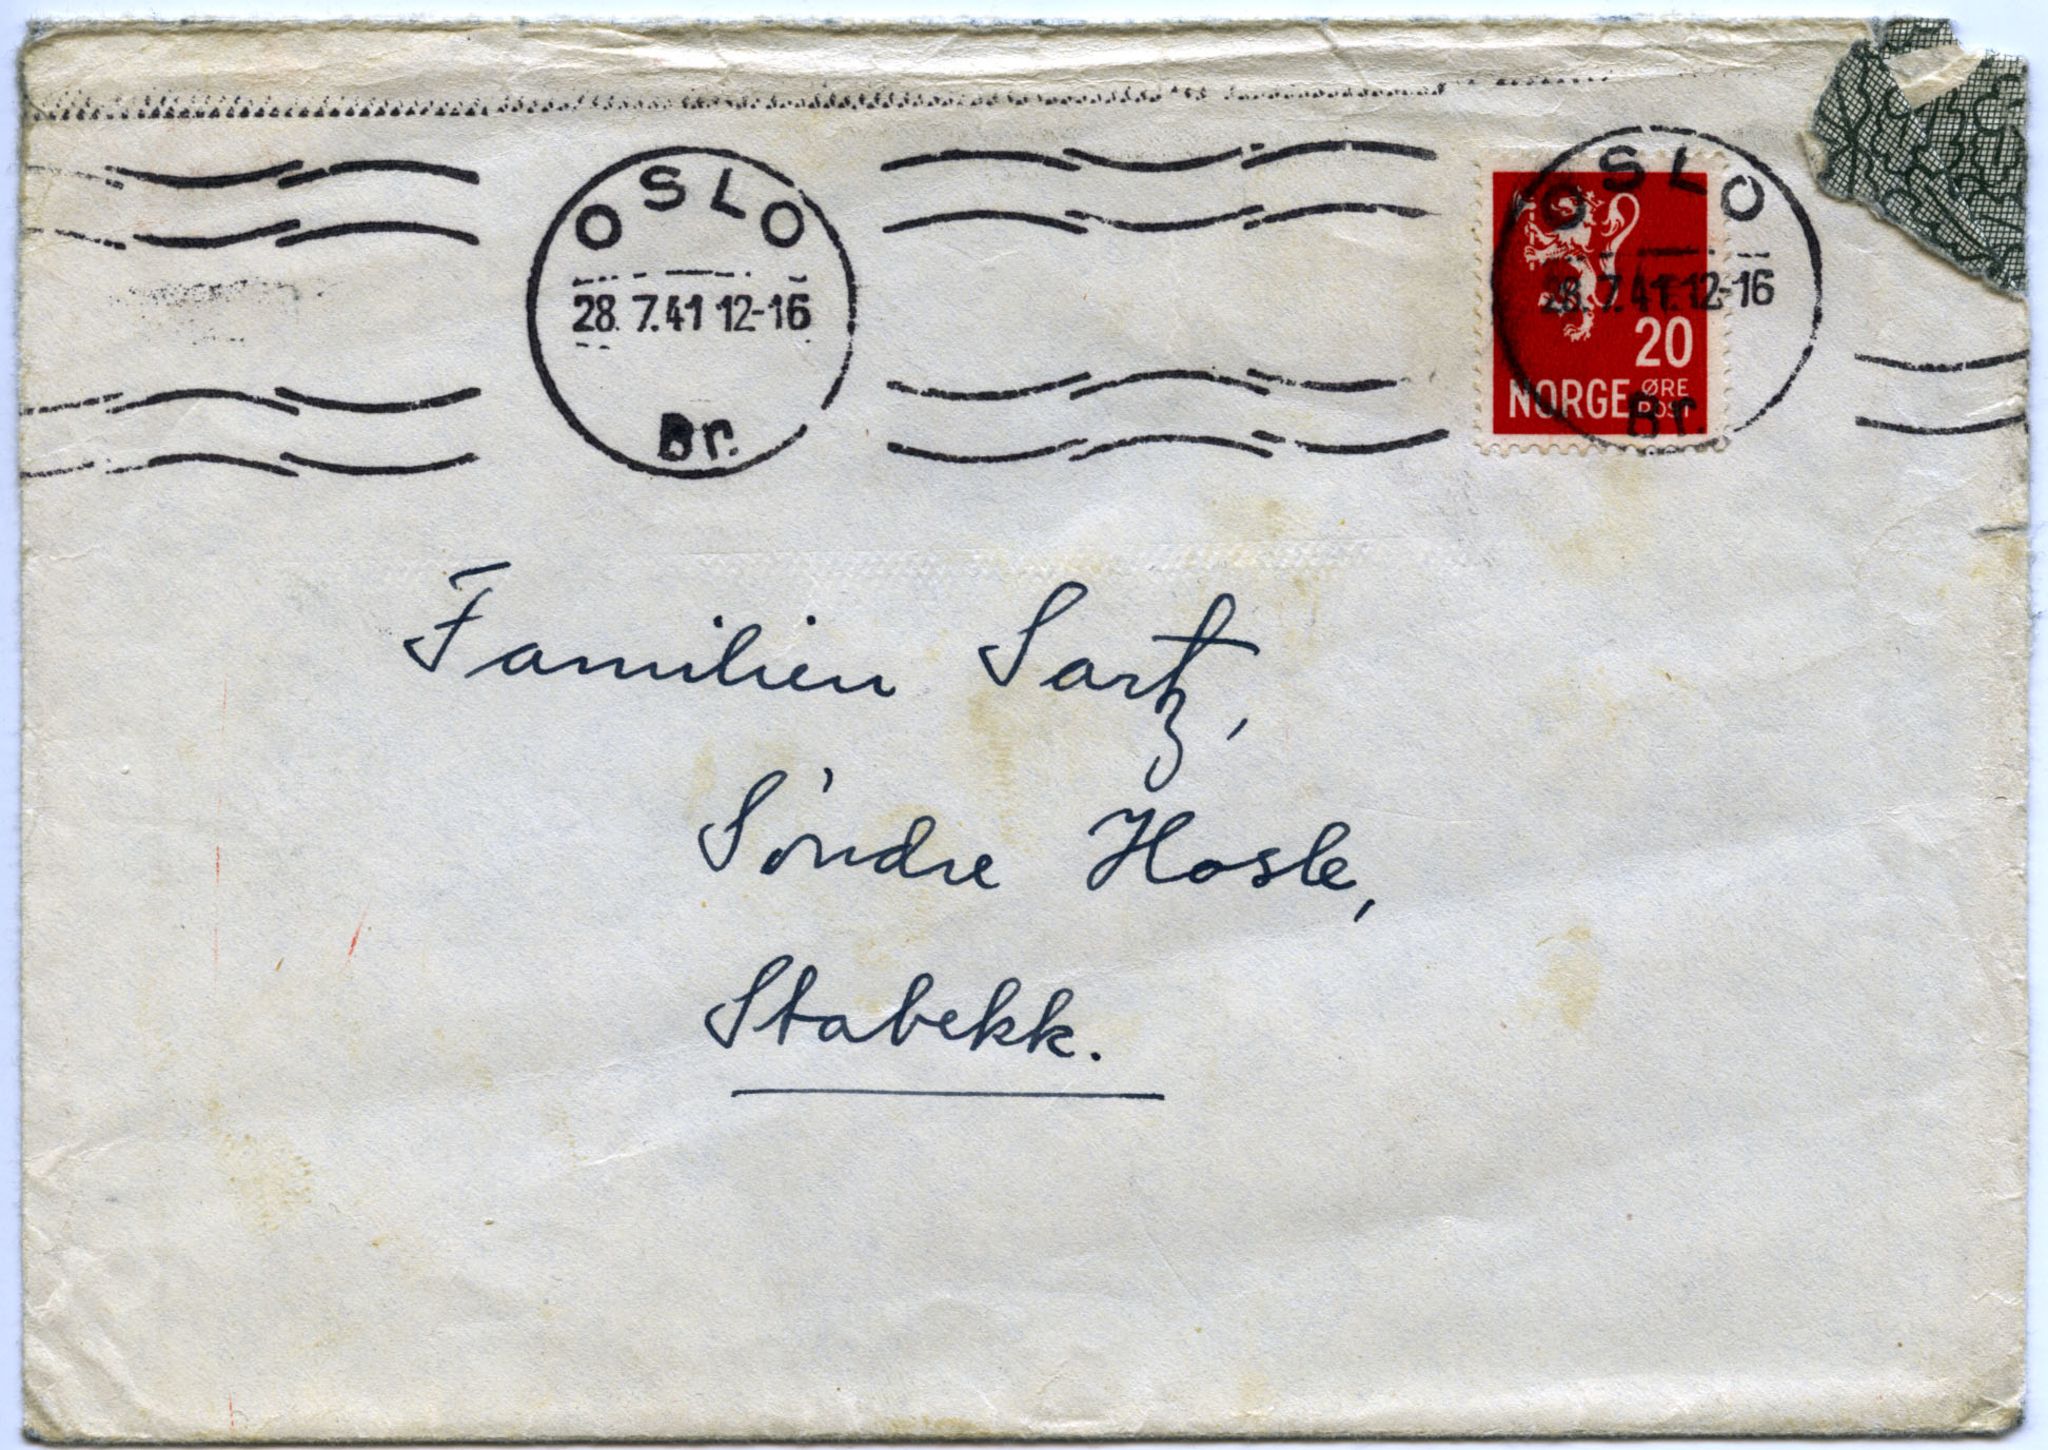 OSLO
28.7.41 12-16
Br.
OSLO
28.7.41 12-16
Br.
20
NORGE ØRE
POST
Familien Sartz,
Søndre Hosle,
Stabekk.